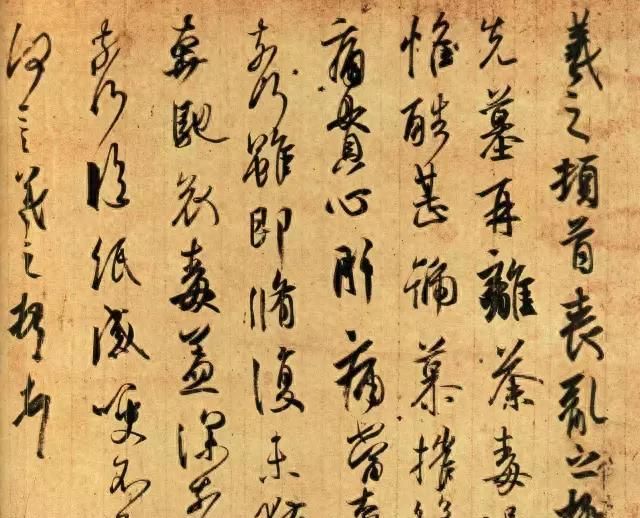 羲之頓首喪亂之極
先墓再離荼毒
惟酷甚號慕摧絶
痛貫心肝痛當奈
奈何雖即脩復未獲
奔馳哀毒益深奈
奈何臨紙感哽不
何言羲之頓首